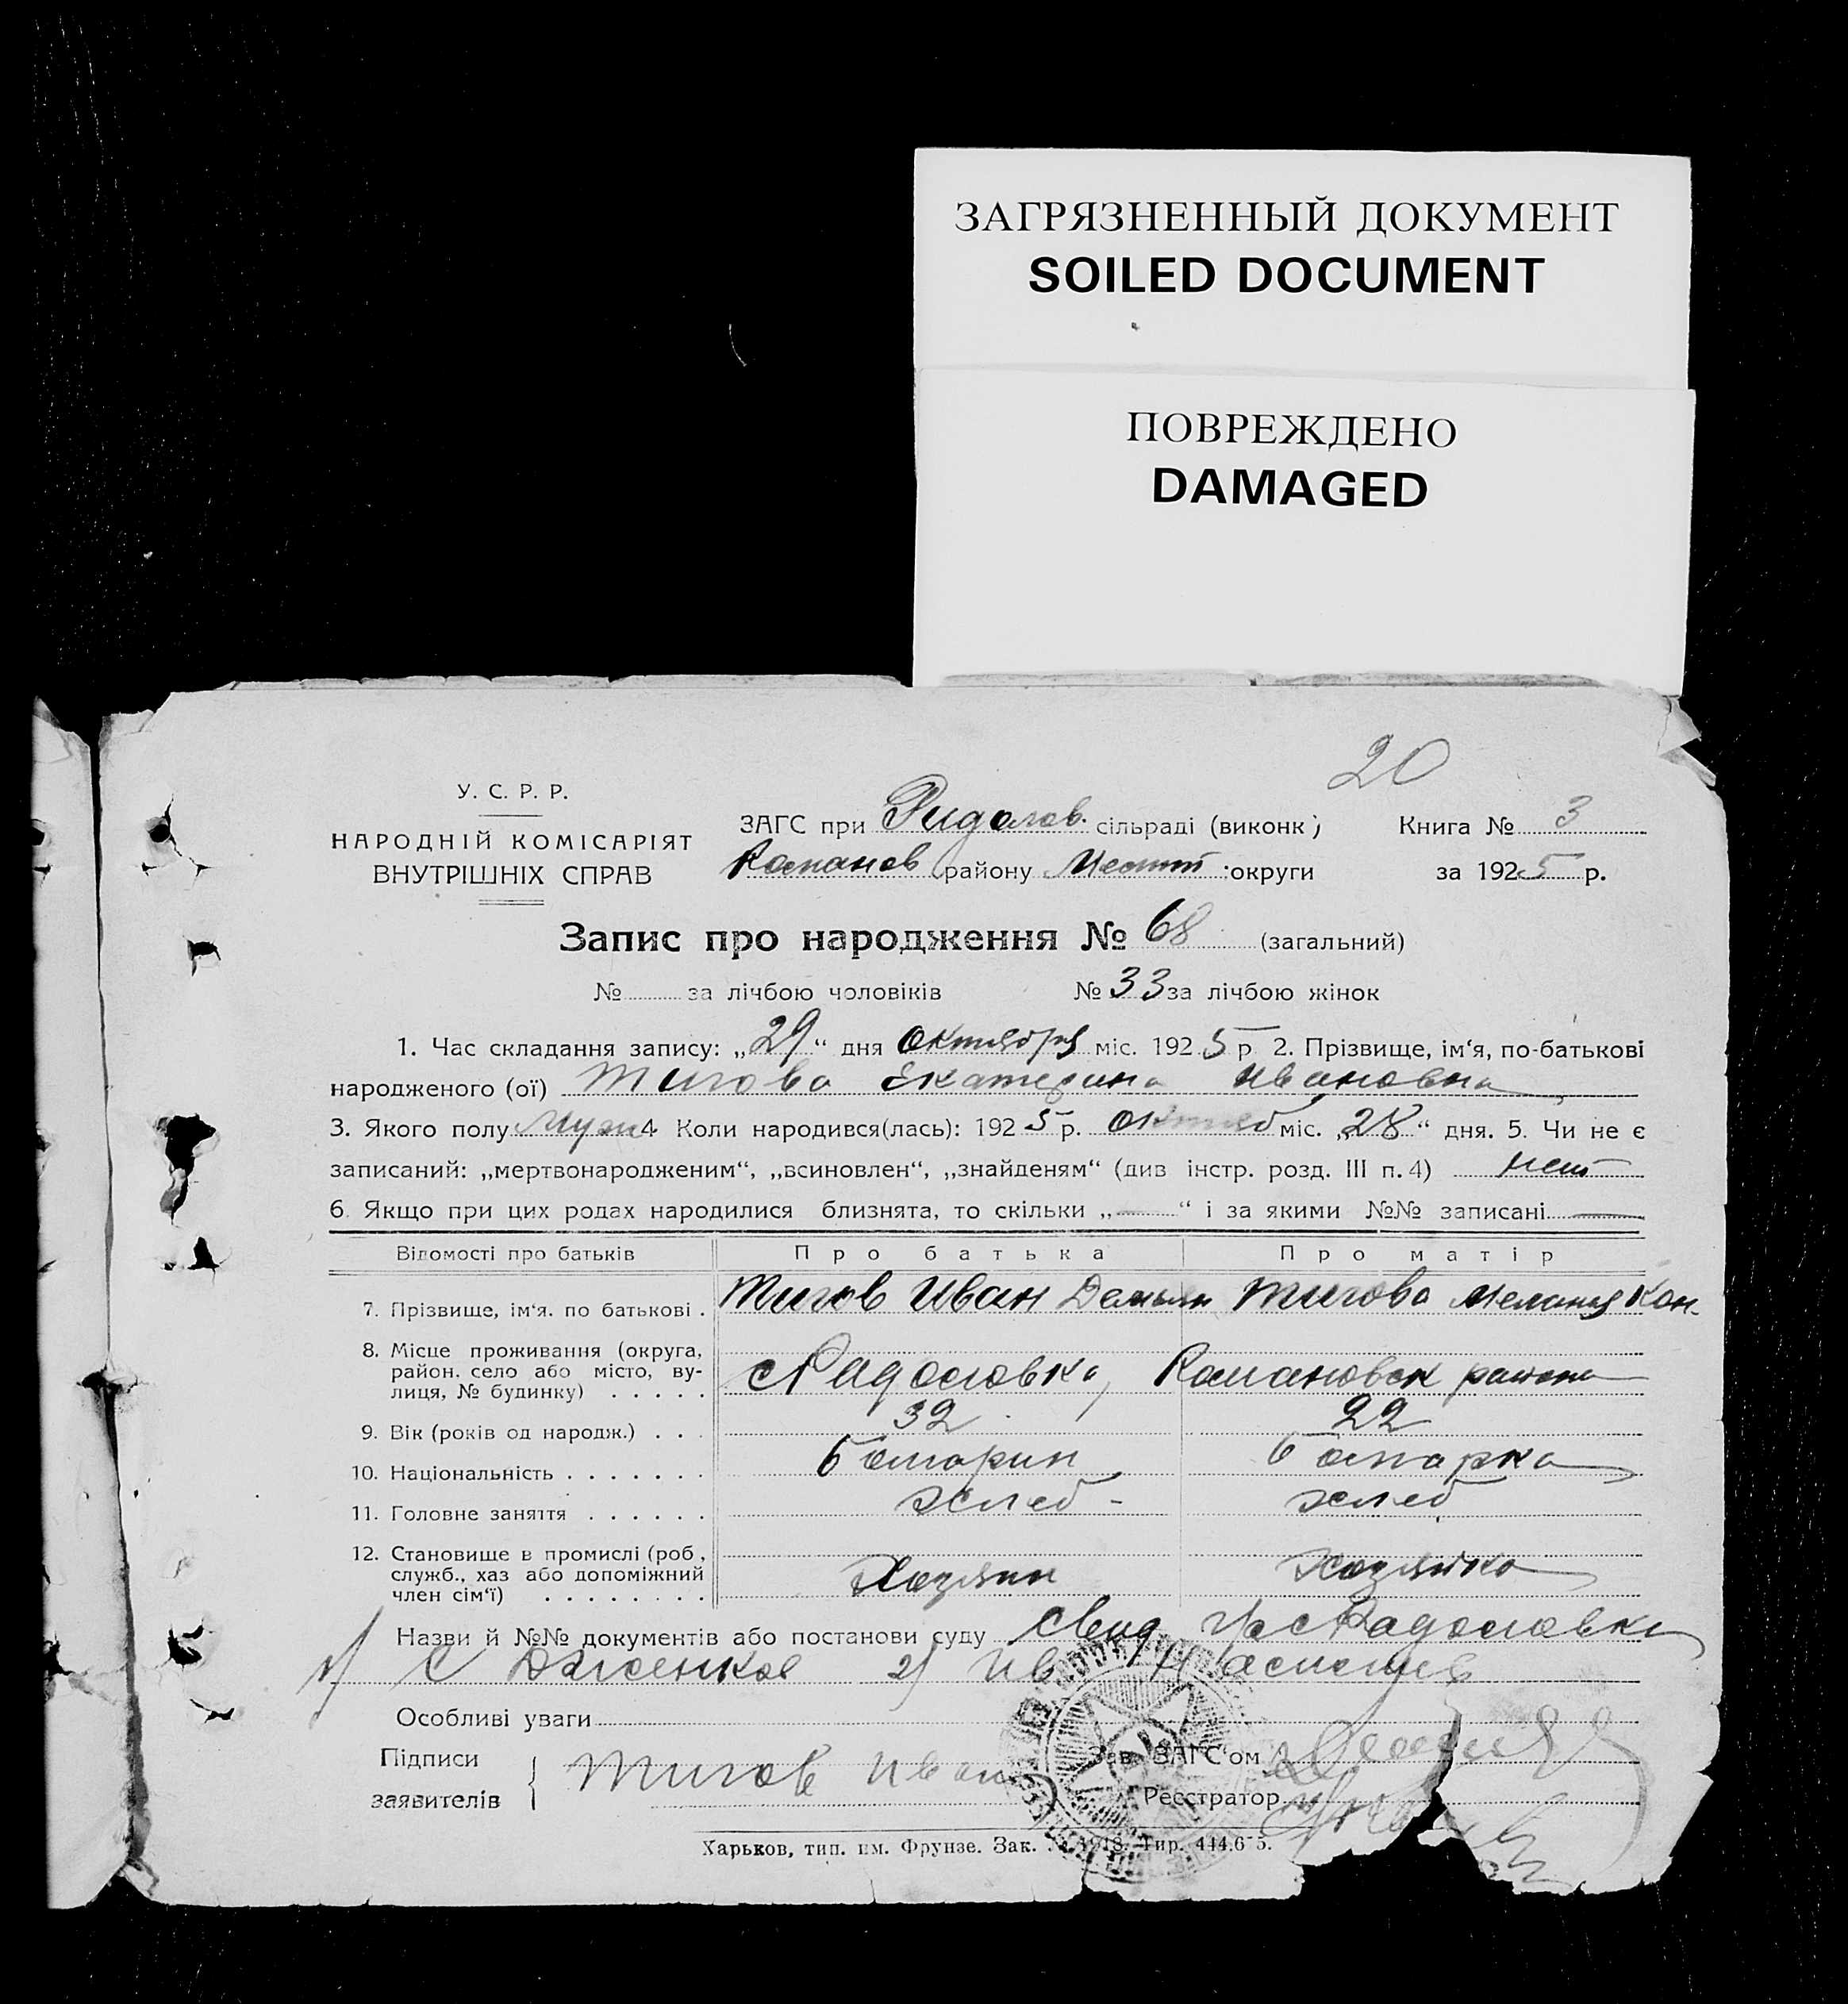 ЗАГРЯЗНЕННЫЙ ДОКУМЕНТ
SOILED DOCUMENT
ПОВРЕЖДЕНО
DAMAGED
20
У. С. Р. Р.
НАРОДНІЙ КОМІСАРІЯТ
ВНУТРІШНІХ СПРАВ
ЗАГС при сільраді (виконк) Книга № 3
Романов району округи за 1925 р.
Запис про народження № 68 (загальний)
№ за лічбою чоловіків № 33 за лічбою жінок
1. Час складання запису: „29“ дня октября міс. 1925 р 2. Прізвище, ім‘я, по-батькові
народженого (ої) Тигова Екатерина Ивановна
3. Якого полу муж 4 Коли народився(лась): 1925 р. октяб міс. „28“ дня. 5. Чи не є
записаний: „мертвонародженим“, „всиновлен“, „знайденям“ (див інстр. розд. III п. 4) нет
6. Якщо при цих родах народилися близнята, то скільки „—“ і за якими №№ записані —
Відомості про батьків Про батька Про матір
7. Прізвище, ім‘я. по батькові . Тигов Иван Демьян Тигова Мелания Кон
8. Місце проживання (округа,
район. село або місто, ву-
лиця, № будинку) . . . . . Романовск района
9. Вік (років од народж.) . . . 32 22
10. Національність . . . . . . . болгарин болгарка
11. Головне заняття . . . . . . хлеб - хлеб
12. Становище в промислі (роб,
служб., хаз або допоміжний
член сім‘ї) . . . . . . . . Хозяин Хозяйка
Назви й №№ документів або постанови суду свид гр с
1) С 2) Ив
Особливі уваги
Підписи
заявителів
Тигов Иван
Зав. ЗАГС‘ом
Реєстратор
Харьков, тип. им. Фрунзе. Зак. Тир. 444.6-5.